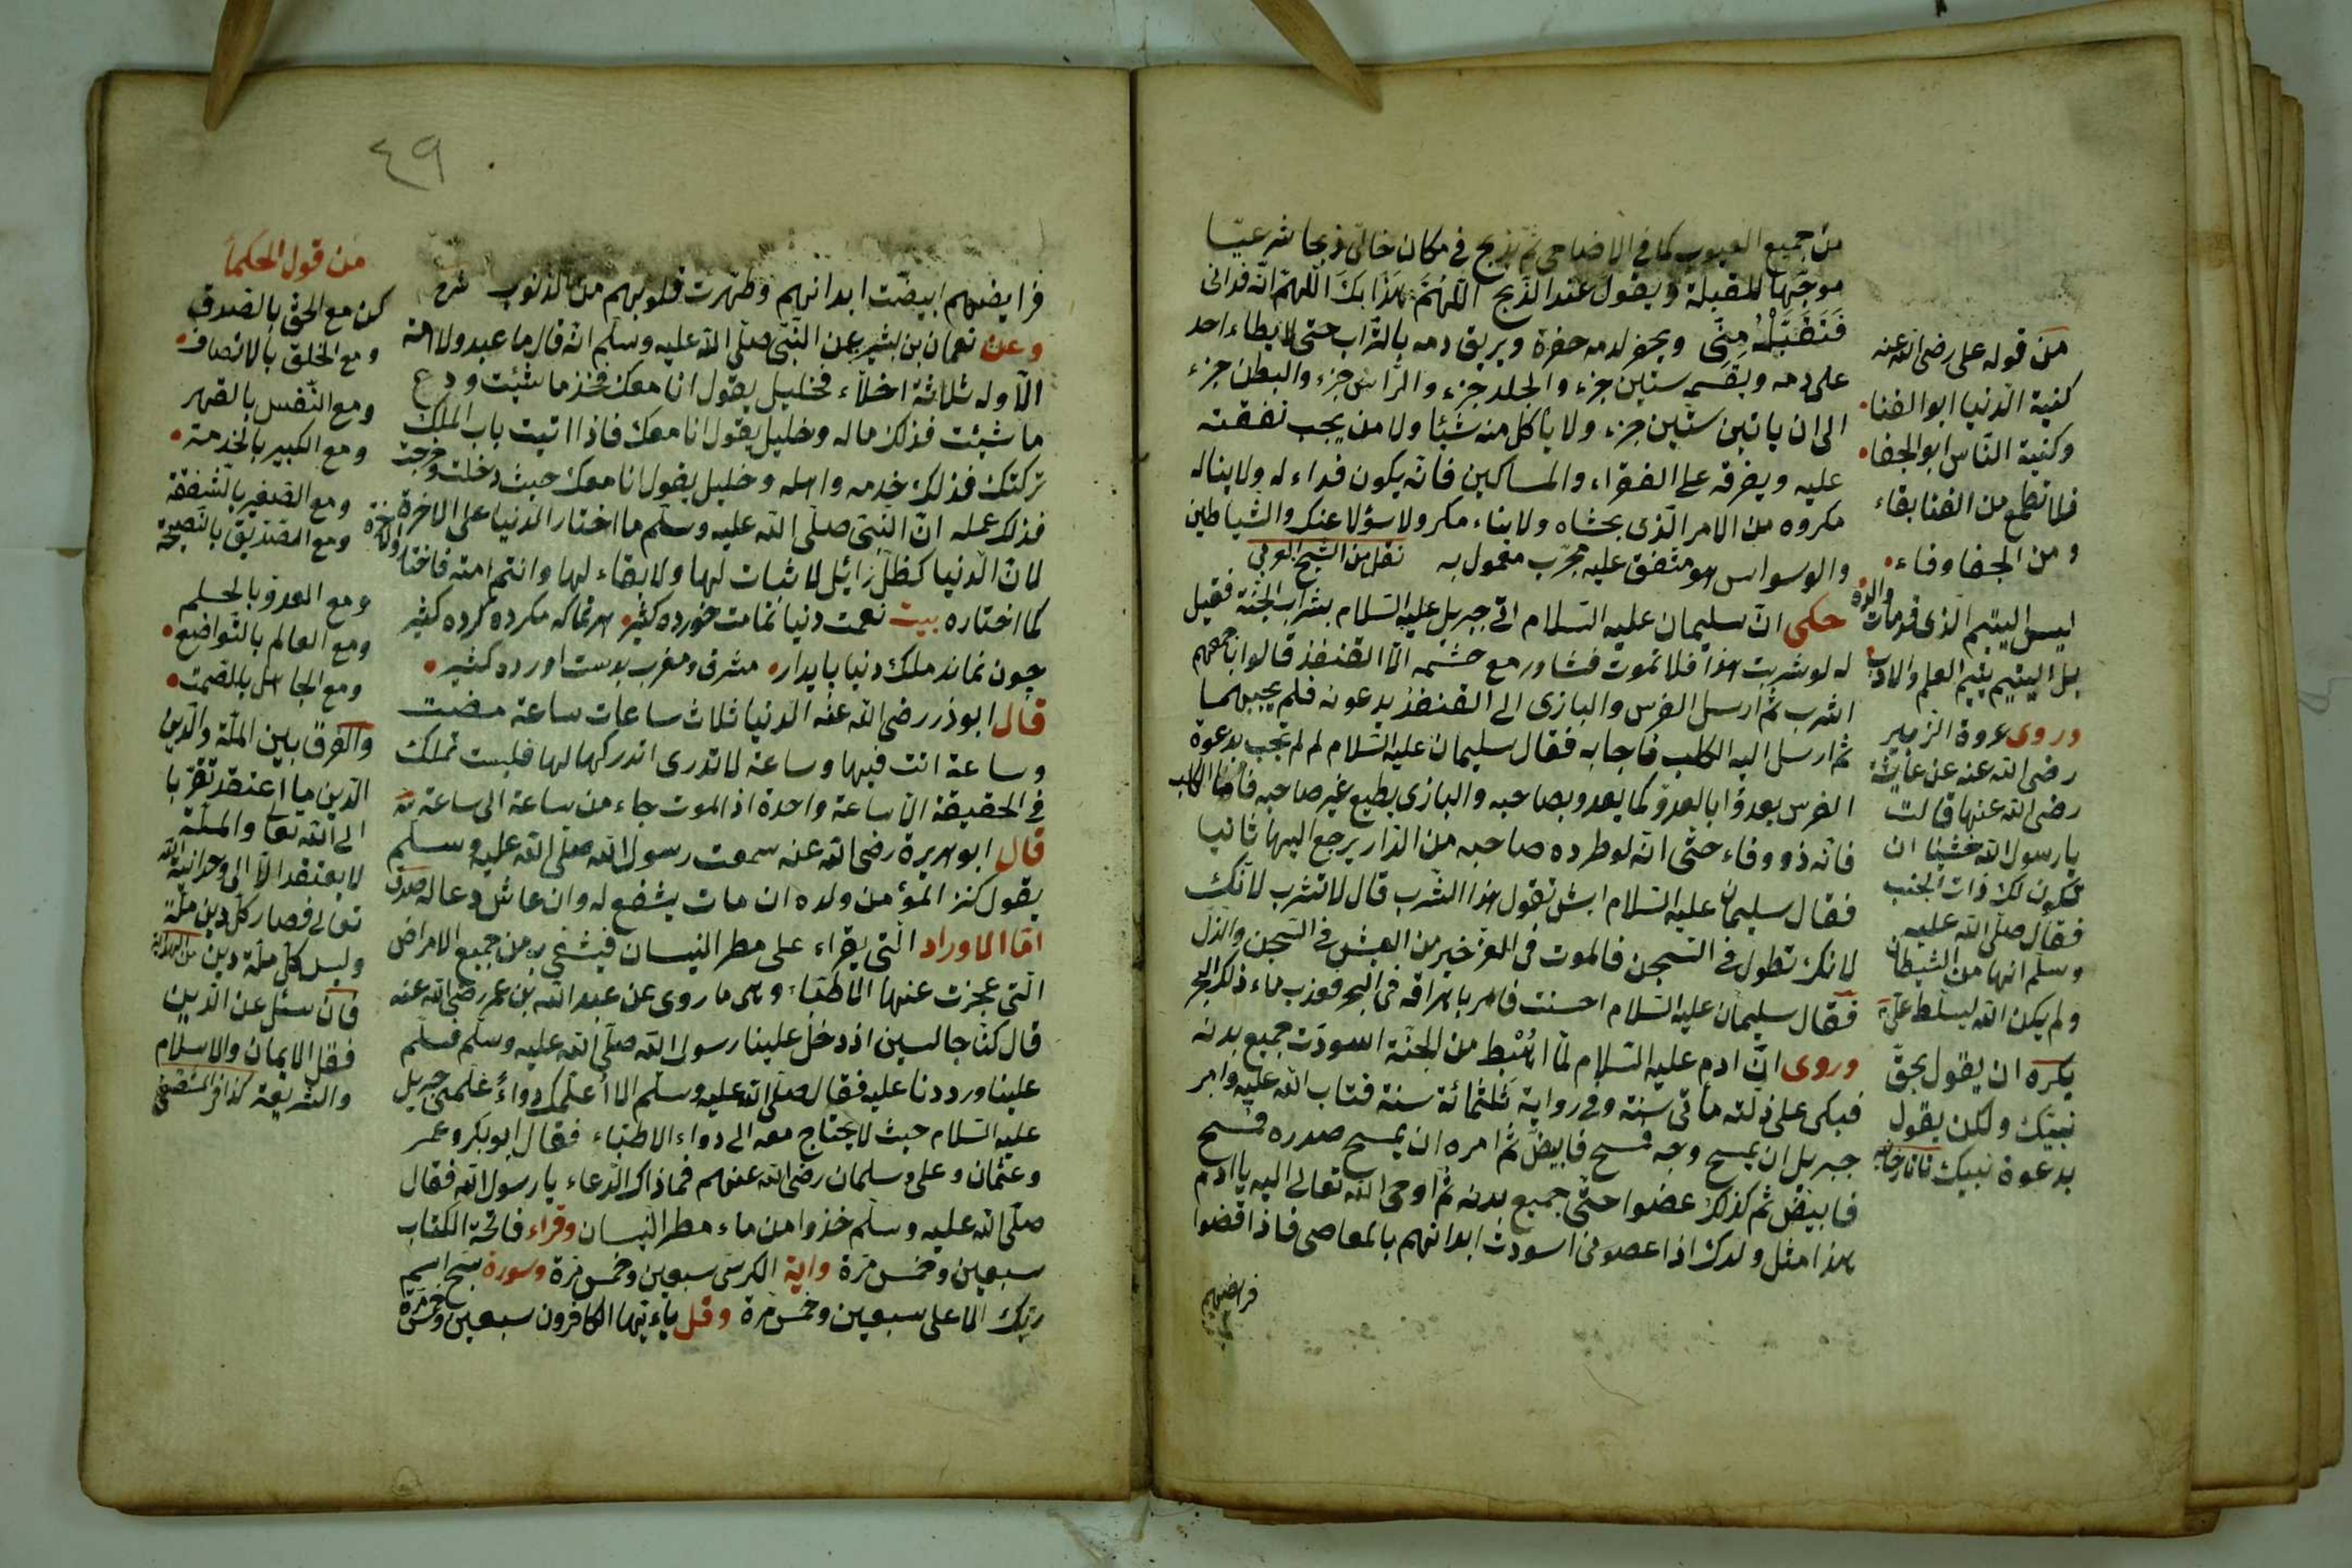 من جميع العيوب كما في الاضاحى ثم يذبح في مكان خالى ذبحا شرعيّا
موجّها للقبلة ويقول عند الذّبح اللّهمّ هذا بك اللّهمّ انّه فدائى
فَتَقَبَّلْهُ مِنِّى ويحفر لدمه حفرة ويريق دمه بالتّراب حتى لا يطاء احد
على دمه ويقسم ستين جزء والجلد جزء والرّاس جزء والبطن جزء
الى ان ياتين ستّين جزء ولا ياكل منه شيئا ولا من يجب نفقته
عليه ويفرقه على الفقراء والمساكين فانّه يكون فداء له ولا يناله
مكروه من الامر الّذى يخشاه
والوسواس هو متفق عليه مجرّب معمول به نقل من الشيخ
حكى انّ سليمان عليه السّلام اتى جبريل عليه السّلام بشراب الجنّة فقيل
له لو شربت هذا فلا تموت فشاور مع حشمه الّا القنفذ قالوا باجمعهم
اشرب ثم ارسل الفرس والبازى الى القنفذ يدعونه فلم يجيبهما
ثم ارسل اليه الكلب فاجابه فقال سليمان عليه السّلام لم لم تجب بدعوة
الفرس يعدو بالعدوّ كما يعدو بصاحبه والبازى يطيع غير صاحبه فامّا الكلب
فانّه ذو وفاء حتّى انّه لو طرده صاحبه من الدّار يرجع اليها ثانيا
فقال سليمان عليه السّلام ايش تقول هذا الشرب قال لا تشرب لانّك
لانك تطول في السّجن فالموت في العزّ خير من العيش في السّجن والذّل
فقال سليمان عليه السّلام احسنت فامر باهراقه في البحر فعذب ماء ذلك البحر
وروى انّ ادم عليه السّلام لمّا اهْبط من الجنّة اسودّت جميع بدنه
فبكى على زلّته مأتى سنة وفي رواية ثلثمائة سنة فتاب اللّه عليه وامر
جبريل ان يمسح وجه فمسح فابيضّ ثم امره ان يمسح صدره فمسح
فابيضّ ثم كذلك عضوا حتّى جميع بدنه ثم اوحى اللّه تعالى اليه يا ادم
هذا مثل ولدك اذا عصونى اسودت ابدانهم بالمعاصى فاذا قضوا
فرايضهم
من قوله على رضى اللّه عنه
كنية الّدنيا ابو الفنا
وكنية النّاس ابو الجفا
فلا تطمع من الفنا بقاء
ومن الجفا وفاء
ليس اليتيم الذى قد مات والده
بل اليتيم يتيم العلم والادب
وروى عروة الزبير
رضى اللّه عنه عن عايشة
رضى اللّه عنها قالت
يا رسول اللّه خشينا ان
تكون لك ذات الجنب
فقال صلّى اللّه عليه
وسلم انها من الشيطان
ولم يكن اللّه ليسلّط علىّ
يكره ان يقول بحقّ
نبيّك ولكن يقول
بدعوة نبيك تاتارخانيه
٤٩
فرايضهم ابيضّت ابدانهم وطهرت قلوبهم من الذنوب شرح
وعن نعمان بن بشير عن النّبى صلّى اللّه عليه وسلّم انّه قال ما عبد ولا امة
الّا وله ثلاثة اخلّاء فخليل يقول انا معك فخذ ما شئت ودع
ما شئت فذلك ماله وخليل يقول انا معك فاذا اتيت باب الملك
تركتك فذلك خدمه واهله وخليل يقول انا معك حيث دخلت وخرجت
فذلك عمله انّ النّبى صلّى اللّه عليه وسلّم ما اختار الّدنيا على الاخرة
لانّ الّدنيا كظلّ زائل لا ثبات لها ولا بقاء لها وانتم امته فاختاروا الاخرة
كما اختاره بيت نعمت دنيا تمامت خورده كثير هر تماكه مكرده كرده كثير
چون نماند ملك دنيا پايدار مشرق ومغرب بدست اورده كثير
قال ابو ذر رضى اللّه عنه الّدنيا ثلاث ساعات ساعة مضت
وساعة انت فيها وساعة لا تدرى اتدركها لها فليست تملك
في الحقيقة الّا ساعة واحدة اذ الموت جاء من ساعة الى ساعة
قال ابو هريرة رضى اللّه عنه سمعت رسول اللّه صلّى اللّه عليه وسلّم
يقول كنز المؤمن ولده ان مات يشفع له وان عاش دعا له
امّا الاوراد الّتى يقراء على مطر النيسان فيشفى به من جميع الامراض
الّتى عجزت عنها الاطبّاء وهى ما روى عن عبد اللّه بن عمر رضى اللّه عنه
قال كنّا جالسين اذ دخل علينا رسول اللّه صلّى اللّه عليه وسلّم فسلّم
علينا ورددنا عليه فقال صلّى اللّه عليه وسلّم الا اعلّمك دواءً علّمنى جبريل
عليه السّلام حيث لا يحتاج معه الى دواء الاطبّاء فقال ابو بكر وعمر
وعثمان وعلى وسلمان رضى اللّه عنهم فما ذاك الّدعاء يا رسول اللّه فقال
صلّى اللّه عليه وسلّم خذوا من ماء مطر النيسان وقراء فاتحة الكتاب
سبعين وخمس مرّة واية الكرسى سبعين وخمس مرّة وسورة سبّح اسم
ربّك الاعلى سبعين وخمس مرّة وقل ياءيّها الكافرون سبعين وخمس مرّة
من قول الحكما
كن مع الحق بالصدق
ومع الخلق بالانصاف
ومع النّفس بالقهر
ومع الكبير بالخدمة
ومع الصّغير بالشفقة
ومع الصّديق بالنّصيحة
ومع العدو بالحلم
ومع العالم بالتّواضع
ومع الجاهل بالصمت
والفرق بين الملّة والّدين
الّدين ما اعتقد تقرّبا
الى اللّه تعالى والملّة
لا يعتقد الّا الى وحدانية اللّه
تعالى فصار كلّ دين ملّة
وليس كلّ ملّة دين
فان سئل عن الّدين
فقل الايمان والاسلام
والشريعة كذا في